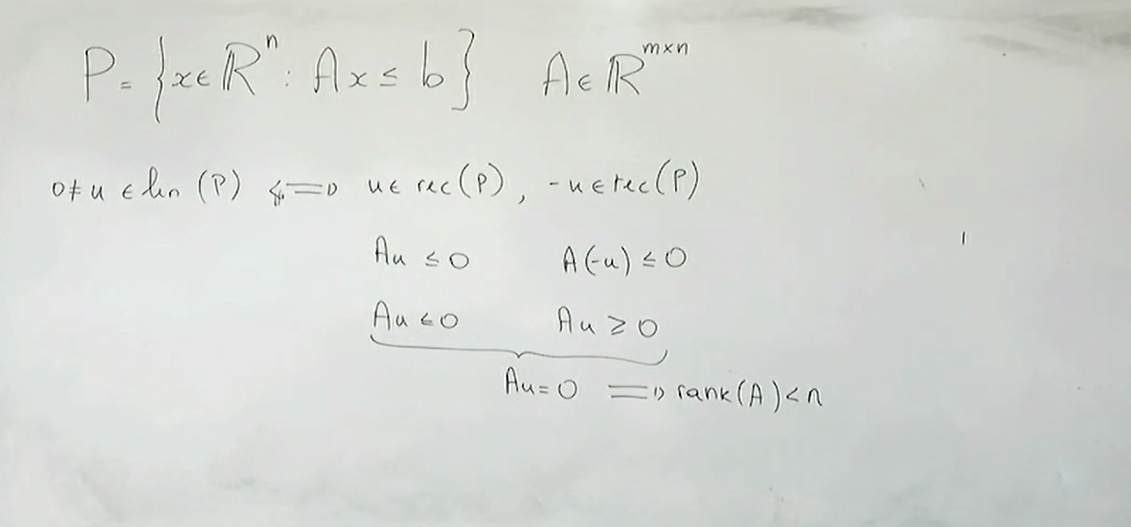 P = {x ∈ ℝⁿ : Ax ≤ b} A ∈ ℝ^{m×n}
0 ≠ u ∈ lin (P) ⟺ u ∈ rec(P), -u ∈ rec(P)
Au ≤ 0 A(-u) ≤ 0
Au ≤ 0 Au ≥ 0
Au = 0 ⟹ rank(A) < n